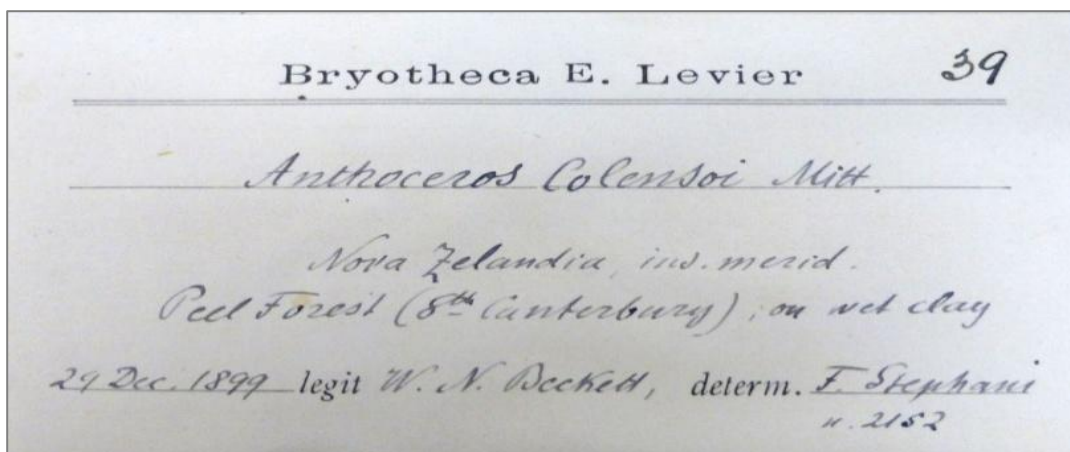 Bryotheca E. Levier 39
Anthoceros Colensoi Mitt.
Nova Zelandia, ins. merid.
Peel Forest (8th Canterbury), on wet clay
29 Dec. 1899 legit W. N. Beckett, determ. F. Stephani
n. 2152